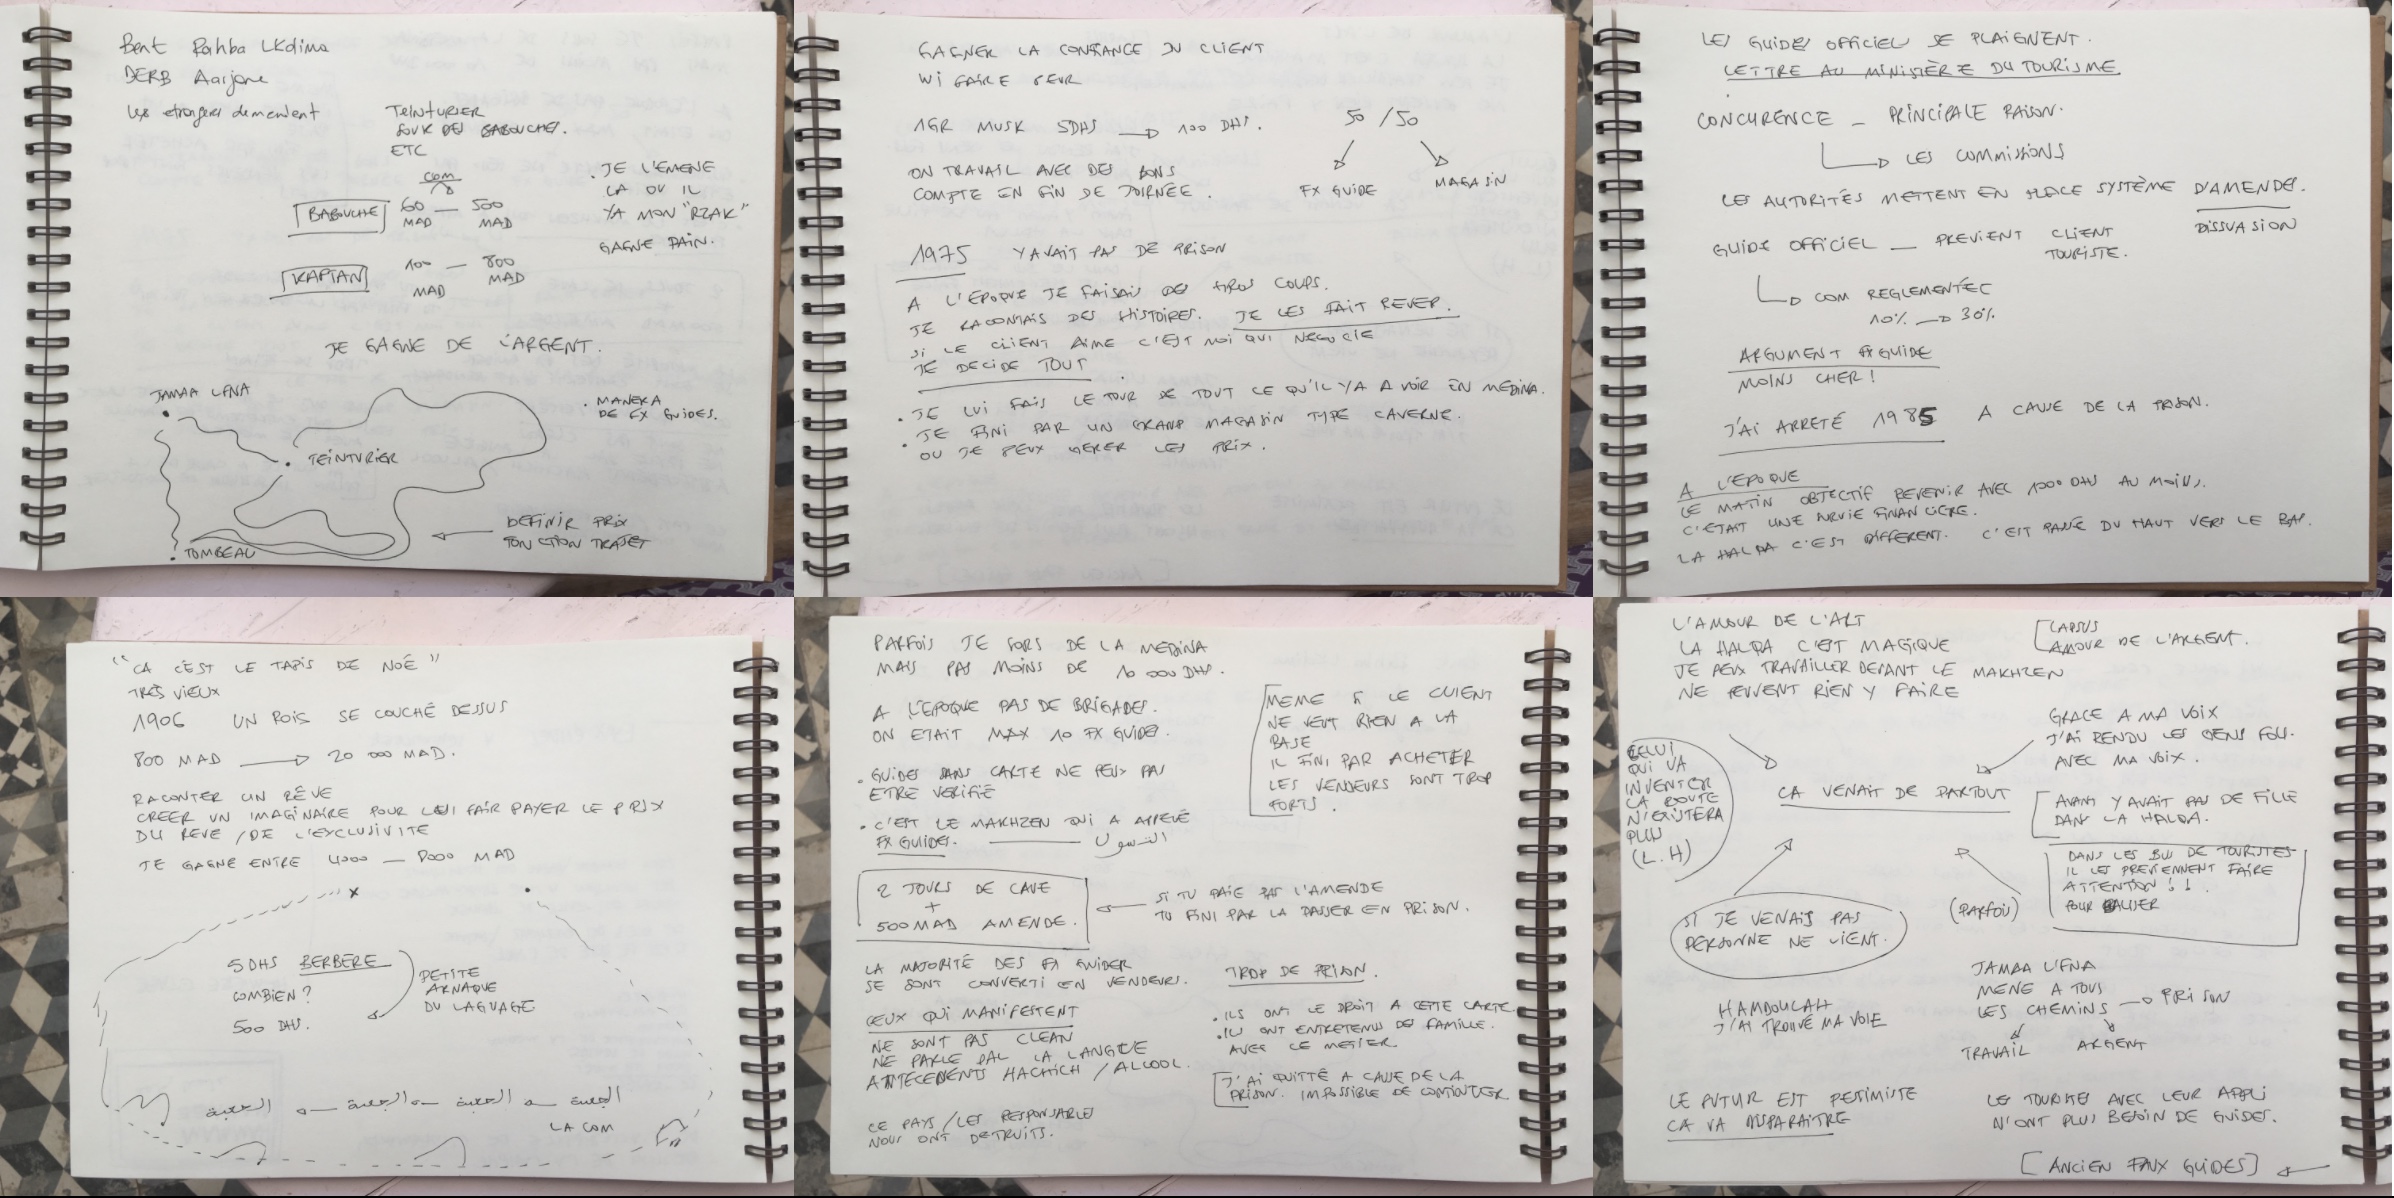 Bent Rahba Lkdima
DERB Aarjane
Les etrangers demandent
TEINTURIER
SOUK DES BABOUCHES.
ETC
COM
BABOUCHE
60 — 500
MAD MAD
. JE L'EMENE
LA OU IL
YA MON "RZAK"
GAGNE PAIN.
KAFTAN
100 — 800
MAD MAD
JE GAGNE DE L'ARGENT.
JAMAA LFNA
. MANEKA
DE FX GUIDES.
TEINTURIER
DEFINIR PRIX
FONCTION TRAJET
TOMBEAU
GAGNER LA CONFIANCE DU CLIENT
WI FAIRE PEUR
1GR MUSK 5DHS → 100 DHS.
50 / 50
FX GUIDE
MAGASIN
ON TRAVAIL AVEC DES BONS
COMPTE EN FIN DE JOURNÉE.
1975 Y AVAIT PAS DE PRISON
A L'EPOQUE JE FAISAIS DES GROS COUPS.
JE RACONTAIS DES HISTOIRES. JE LES FAIT REVER.
SI LE CLIENT AIME C'EST MOI QUI NEGOCIE
JE DECIDE TOUT
. JE LUI FAIS LE TOUR DE TOUT CE QU'IL YA A VOIR EN MEDINA.
. JE FINI PAR UN GRAND MAGASIN TYPE CAVERNE.
OU JE PEUX GERER LES PRIX.
LES GUIDES OFFICIEL SE PLAIGNENT.
LETTRE AU MINISTÈRE DU TOURISME
CONCURENCE _ PRINCIPALE RAISON.
→ LES COMMISSIONS
LES AUTORITÉS METTENT EN PLACE SYSTÈME D'AMENDES.
DISSUASION
GUIDE OFFICIEL — PREVIENT CLIENT
TOURISTE.
→ COM REGLEMENTEE
10% → 30%
ARGUMENT FX GUIDE
MOINS CHER !
J'AI ARRETÉ 1985 A CAUSE DE LA PRISON.
A L'EPOQUE
LE MATIN OBJECTIF REVENIR AVEC 1000 DHS AU MOINS.
C'ETAIT UNE FINANCIERE.
LA HALQA C'EST DIFFERENT. C'EST PASSÉ DU HAUT VERS LE BAS.
"CA C'EST LE TAPIS DE NOÉ"
TRÈS VIEUX
1906 UN ROIS SE COUCHÉ DESSUS
800 MAD → 20 000 MAD.
RACONTER UN RÊVE
CREER UN IMAGINAIRE POUR LUI FAIR PAYER LE PRIX
DU REVE / DE L'EXCLUSIVITE
JE GAGNE ENTRE 4000 — 8000 MAD
x
5 DHS BERBERE
COMBIEN?
500 DHS.
PETITE
ARNAQUE
DU LAGUAGE
الجعبة → الجعبة → الجعبة → الجعبة
LA COM
PARFOIS JE SORS DE LA MEDINA
MAIS PAS MOINS DE 10 000 DHS.
A L'EPOQUE PAS DE BRIGADES.
ON ETAIT MAX 10 FX GUIDES.
. GUIDES SANS CARTE NE PEUX PAS
ETRE VERIFIÉ
. C'EST LE MAKHZEN QUI A APPELÉ
FX GUIDES. —
MEME SI LE CLIENT
NE VEUT RIEN A LA
BASE
IL FINI PAR ACHETER
LES VENDEURS SONT TROP
FORTS.
2 JOURS DE CAVE
+
500 MAD AMENDE.
SI TU PAIE PAS L'AMENDE
TU FINI PAR LA PASSER EN PRISON.
LA MAJORITÉ DES FX GUIDES
SE SONT CONVERTI EN VENDEURS.
CEUX QUI MANIFESTENT
NE SONT PAS CLEAN
NE PARLE PAS LA LANGUE
ANTECEDENTS HACHICH / ALCOOL.
CE PAYS / LES RESPONSABLES
NOUS ONT DETRUITS.
TROP DE PRISON.
. ILS ONT LE DROIT A CETTE CARTE
. ILS ONT ENTRETENUS DES FAMILLE.
AVEC CE METIER.
J'AI QUITTÉ A CAUSE DE LA
PRISON. IMPOSSIBLE DE CONTINUER
L'AMOUR DE L'ART
LA HALQA C'EST MAGIQUE
JE PEUX TRAVAILLER DEVANT LE MAKHZEN
NE PEUVENT RIEN Y FAIRE
LAPSUS
AMOUR DE L'ARGENT.
GRACE A MA VOIX
J'AI RENDU LES GENS FOU.
AVEC MA VOIX.
CELUI
QUI VA
INVENTER
LA ROUTE
N'EXISTERA
PLUS
(L.H)
CA VENAIT DE PARTOUT
AVANT Y AVAIT PAS DE FILLE
DANS LA HALQA.
DANS LES BUS DE TOURISTES
IL LES PREVIENNENT FAIRE
ATTENTION !!
SI JE VENAIS PAS
PERSONNE NE VIENT.
(PARFOIS)
HAMDOULAH
J'AI TROUVÉ MA VOIE
JAMAA L'FNA
MENE A TOUS
LES CHEMINS → PRISON
TRAVAIL ARGENT
LE FUTUR EST PESIMISTE
CA VA DISPARAITRE
LES TOURISTES AVEC LEUR APPLI
N'ONT PLUS BESOIN DE GUIDES.
[ANCIEN FAUX GUIDES] ←